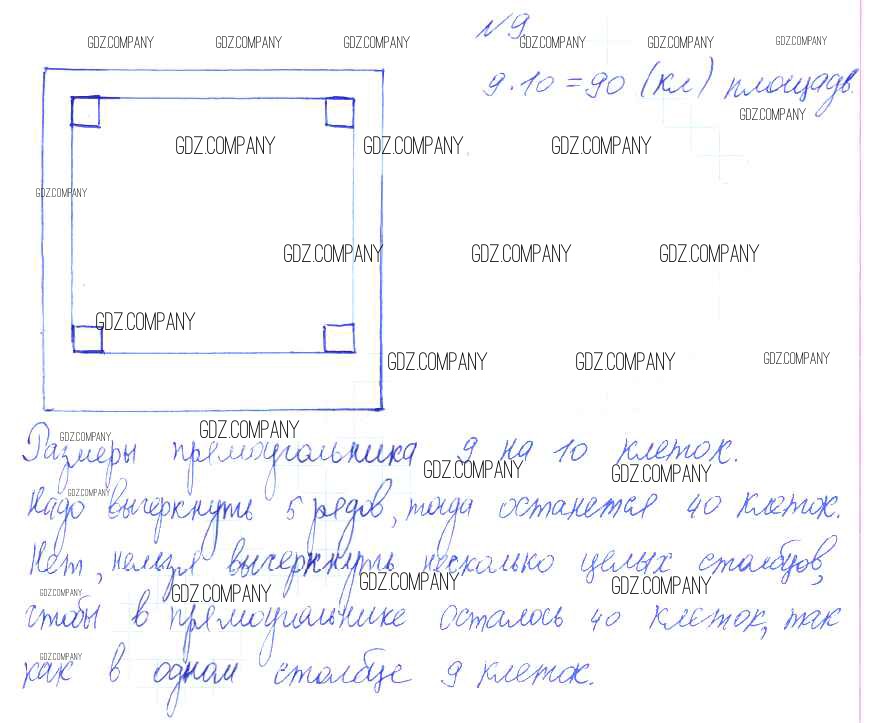 GDZ.COMPANY GDZ.COMPANY GDZ.COMPANY GDZ.COMPANY GDZ.COMPANY GDZ.COMPANY
№9.
9·10=90 (кл) площадь.
GDZ.COMPANY
GDZ.COMPANY GDZ.COMPANY GDZ.COMPANY
GDZ.COMPANY
GDZ.COMPANY GDZ.COMPANY GDZ.COMPANY
GDZ.COMPANY
GDZ.COMPANY GDZ.COMPANY GDZ.COMPANY
GDZ.COMPANY GDZ.COMPANY
Размеры прямоугольника 9 на 10 клеток.
GDZ.COMPANY GDZ.COMPANY
GDZ.COMPANY
Надо вычеркнуть 5 рядов, тогда останется 40 клеток.
Нет, нельзя вычеркнуть несколько целых столбцов,
GDZ.COMPANY GDZ.COMPANY GDZ.COMPANY GDZ.COMPANY
чтобы в прямоугольнике осталось 40 клеток, так
GDZ.COMPANY
как в одном столбце 9 клеток.